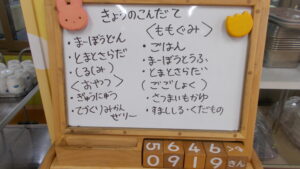 きょうのこんだて
・まーぼうどん
・とまとさらだ
・しるしみ
〈おやつ〉
・ぎゅうにゅう
・てづくりみかんぜりー
〈ももぐみ〉
・ごはん
・まーぼうとうふ
・とまとさらだ
(ごごしょく)
・さつまいもがゆ
・すましじる・くだもの
5 6 4 6
0 9 1 9 きん